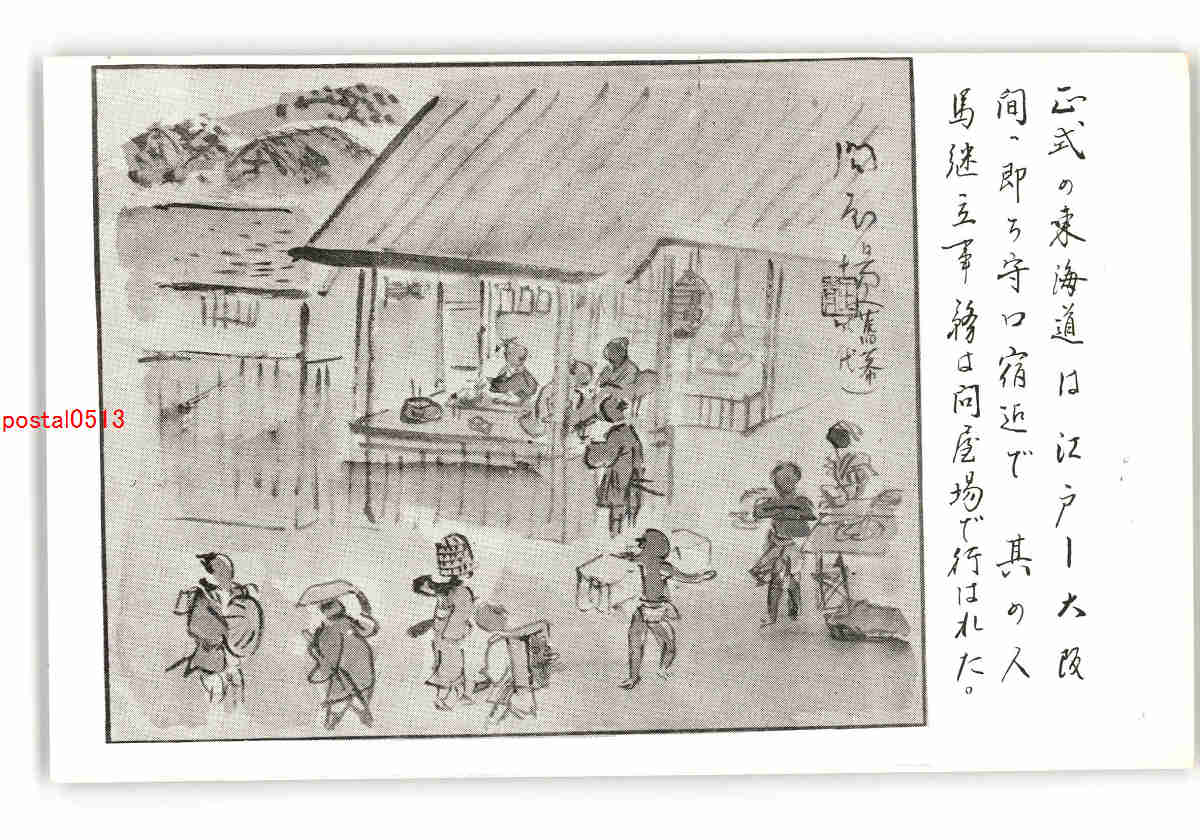 正式の東海道は江戸ー大阪
間、即ち守口宿近で其の人
馬継立事務は問屋場で行はれた。
問屋場
postal0513